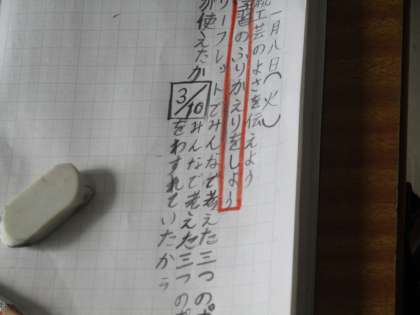 月八日(火)
工芸のよさを伝えよう
習のふりかえりをしよう
リーフレットでみんなで考えた三つの
が使えたか
3/10
みんなで考えた三つの
をわすれていたから